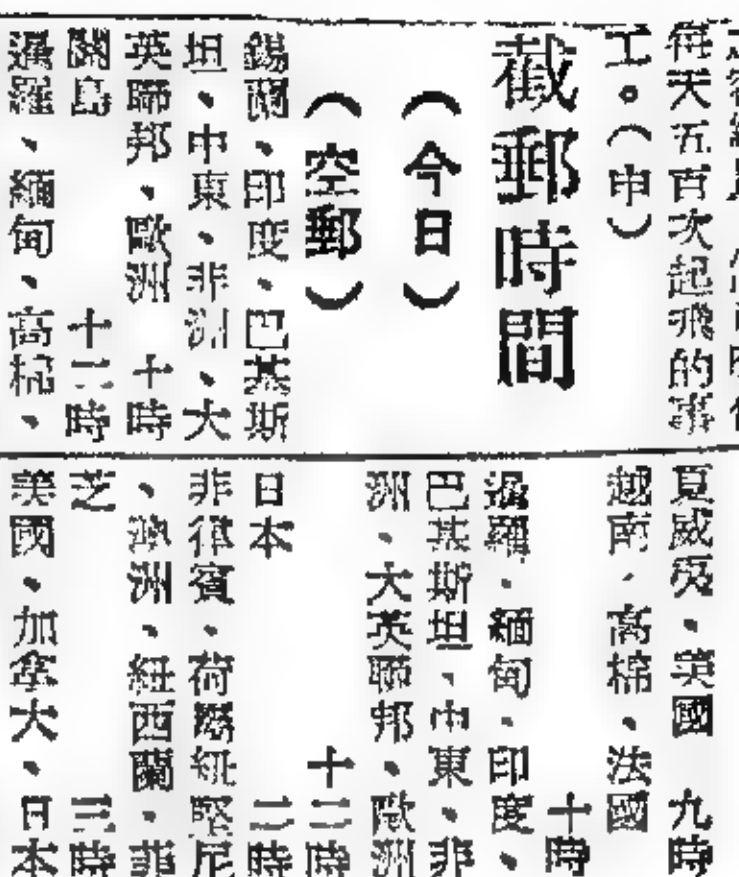 每天五百次起飛的事
工。（申）
截郵時間
（今日）
（空郵）
錫蘭、印度、巴基斯
坦、中東、非洲、大
英聯邦、歐洲 十時
關島 十二時
暹羅、緬甸、高棉、
夏威夷、美國 九時
越南、高棉、法國
十時
暹羅、緬甸、印度、
巴基斯坦、中東、非
洲、大英聯邦、歐洲
十二時
日本 二時
非律賓、荷屬紐堅尼
、澳洲、紐西蘭、菲
芝 三時
美國、加拿大、日本